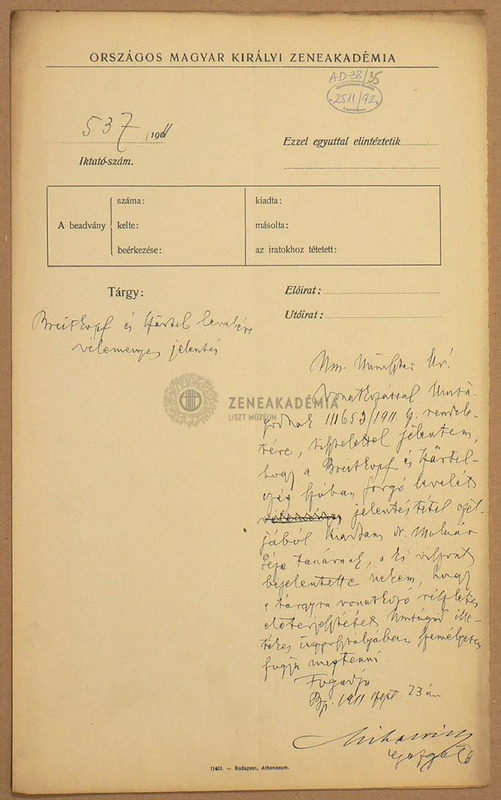 ORSZÁGOS MAGYAR KIRÁLYI ZENEAKADÉMIA
AD-38/35
2511/92
537/1911
Iktató-szám.
Ezzel egyuttal elintéztetik
A beadvány
száma:
kelte:
beérkezése:
kiadta:
másolta:
az iratokhoz tétetett:
Tárgy:
Előirat:
Utóirat:
Breitkopf és Härtel levelére
véleményes jelentés
Nm. Miniszter Úr!
Vonatkozással Umtá-
godnak 111653/1911 rendele-
tére, tisztelettel jelentem,
hogy a Breitkopf és Härtel-
cég szóban forgó levelét
jelentéstétel cél-
jából kiadtam dr. Molnár
Géza tanárnak, a ki viszont
bejelentette nekem, hogy
a tárgyra vonatkozó részletes
előterjesztését illeté-
kes ügyosztályában személyesen
fogja megtenni.
Fogadja
Bp. 1911 szept. 23 án
Mihalovich
igazgató
ZENEAKADÉMIA
LISZT MÚZEUM
11401. — Budapest, Athenaeum.